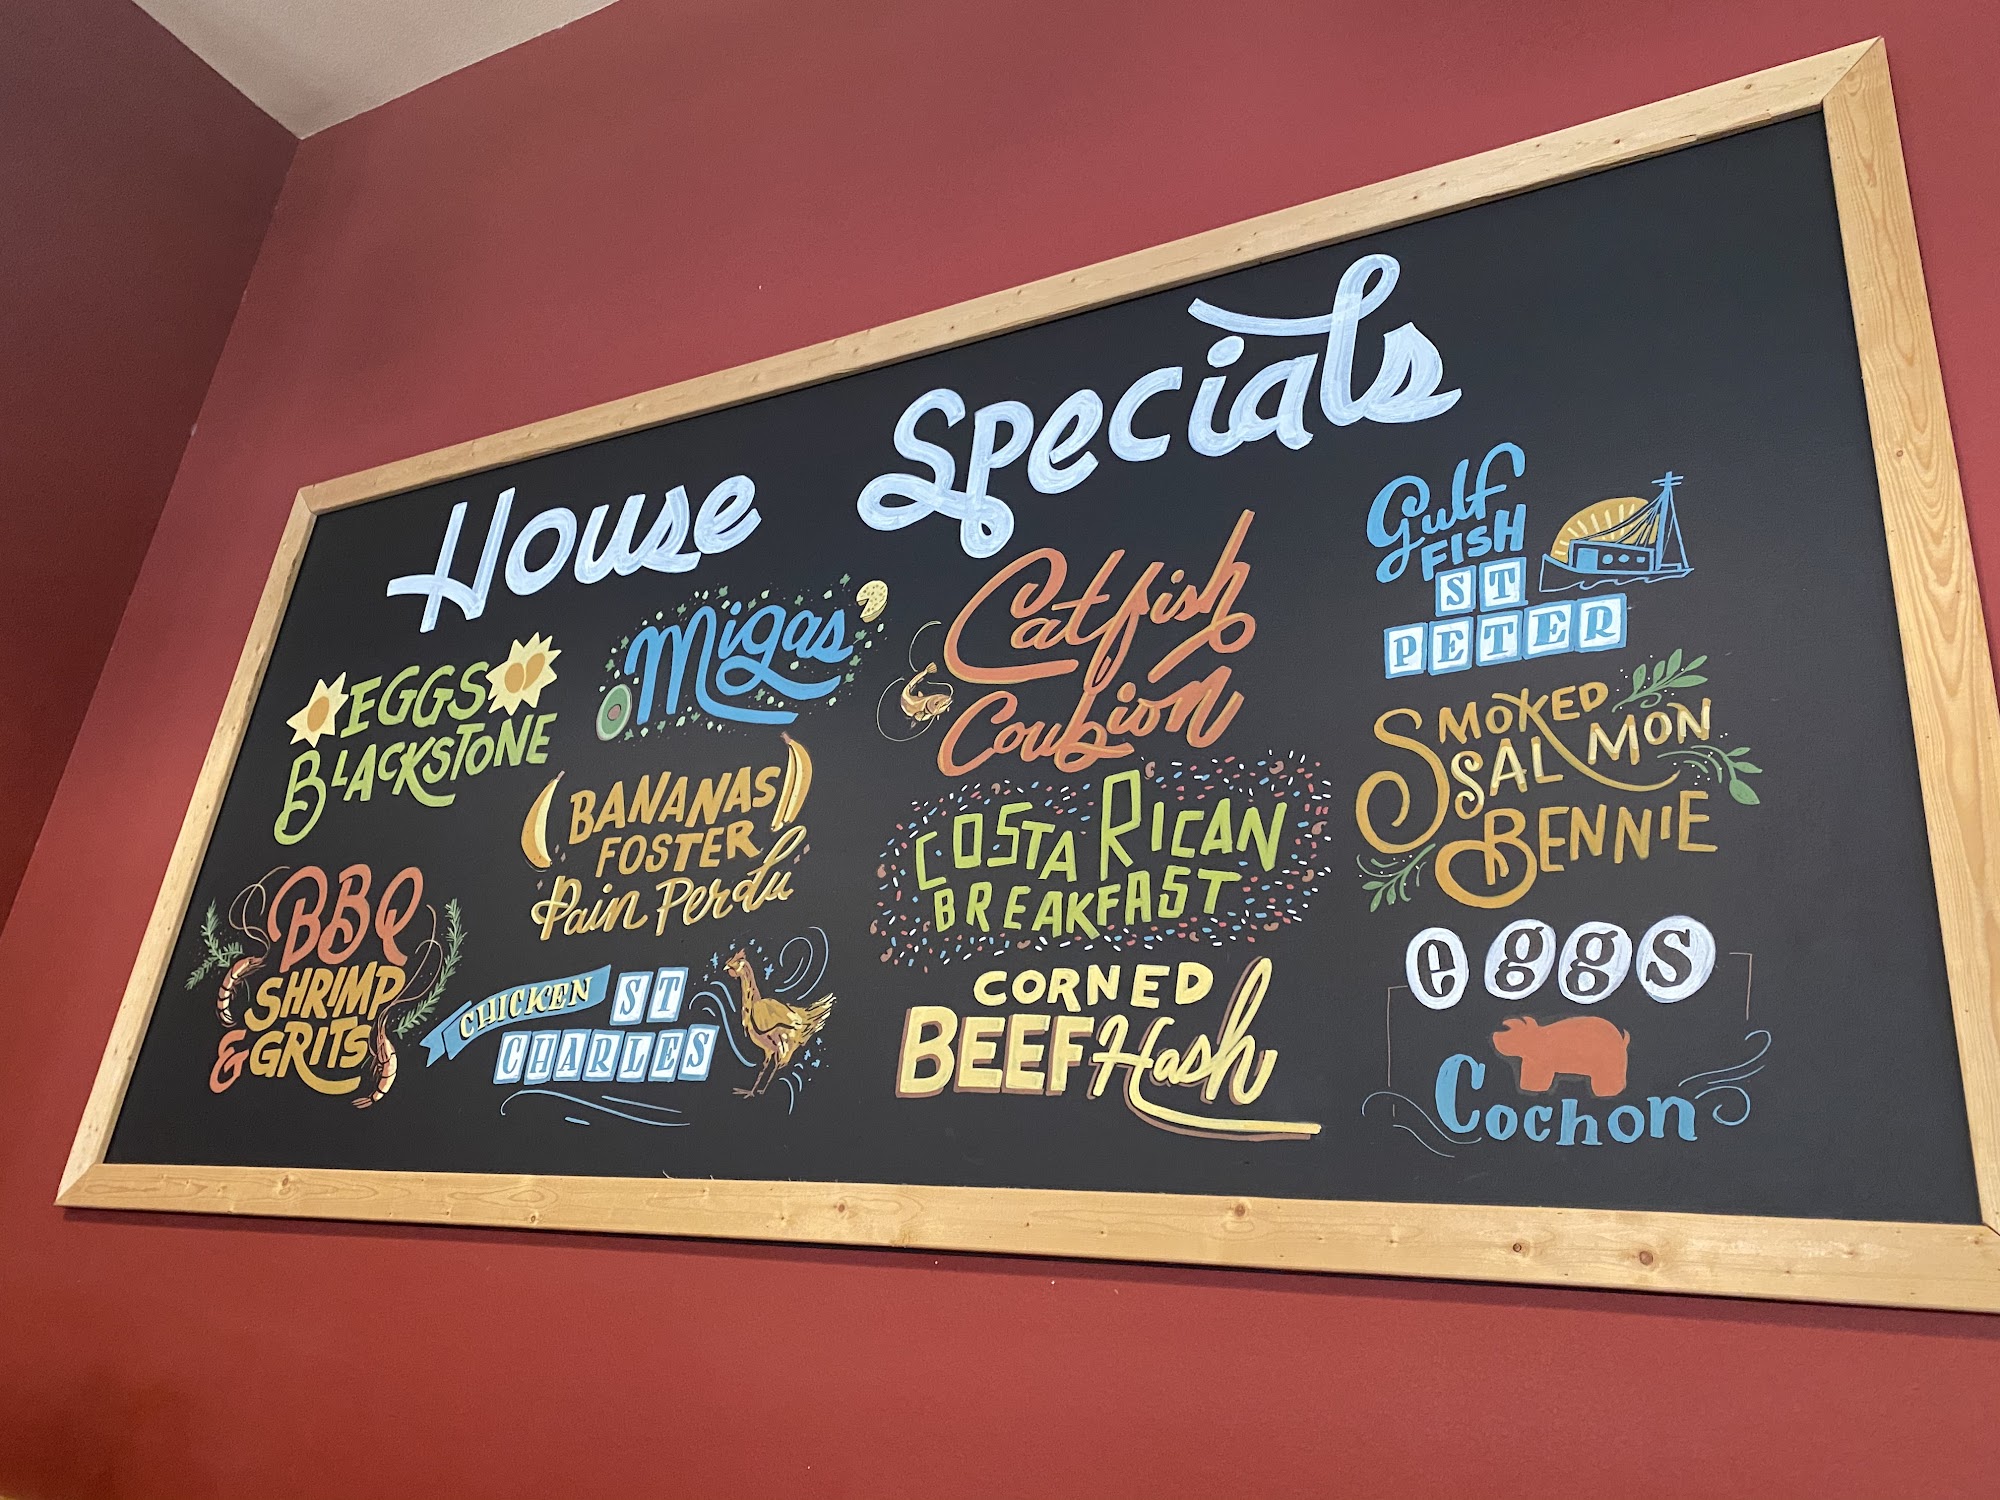 House Specials
EGGS
BLACKSTONE
Migas
BBQ
SHRIMP
& GRITS
BANANAS
FOSTER
Pain Perdu
CHICKEN ST
CHARLES
Catfish
Coubion
COSTA RICAN
BREAKFAST
CORNED
BEEF Hash
Gulf
FISH
ST
PETER
SMOKED
SALMON
BENNIE
eggs
Cochon